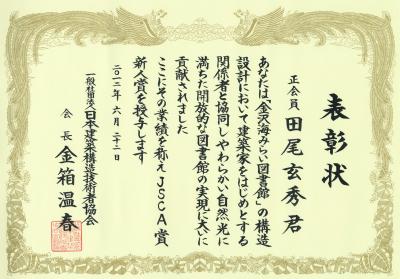 表彰状
正会員
田尾玄秀君
あなたは「金沢海みらい図書館」の構造
設計において建築家をはじめとする
関係者と協同しやわらかい自然光に
満ちた開放的な図書館の実現に大いに
貢献されました
ここにその業績を称えJSCA賞
新人賞を授与します
二〇一二年六月二十一日
一般社団法人日本建築構造技術者協会
会長 金箱温春